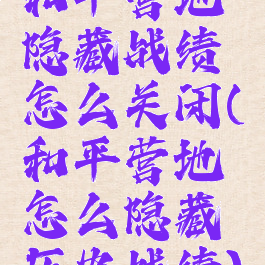 和平营地
隐藏战绩
怎么关闭(
和平营地
怎么隐藏